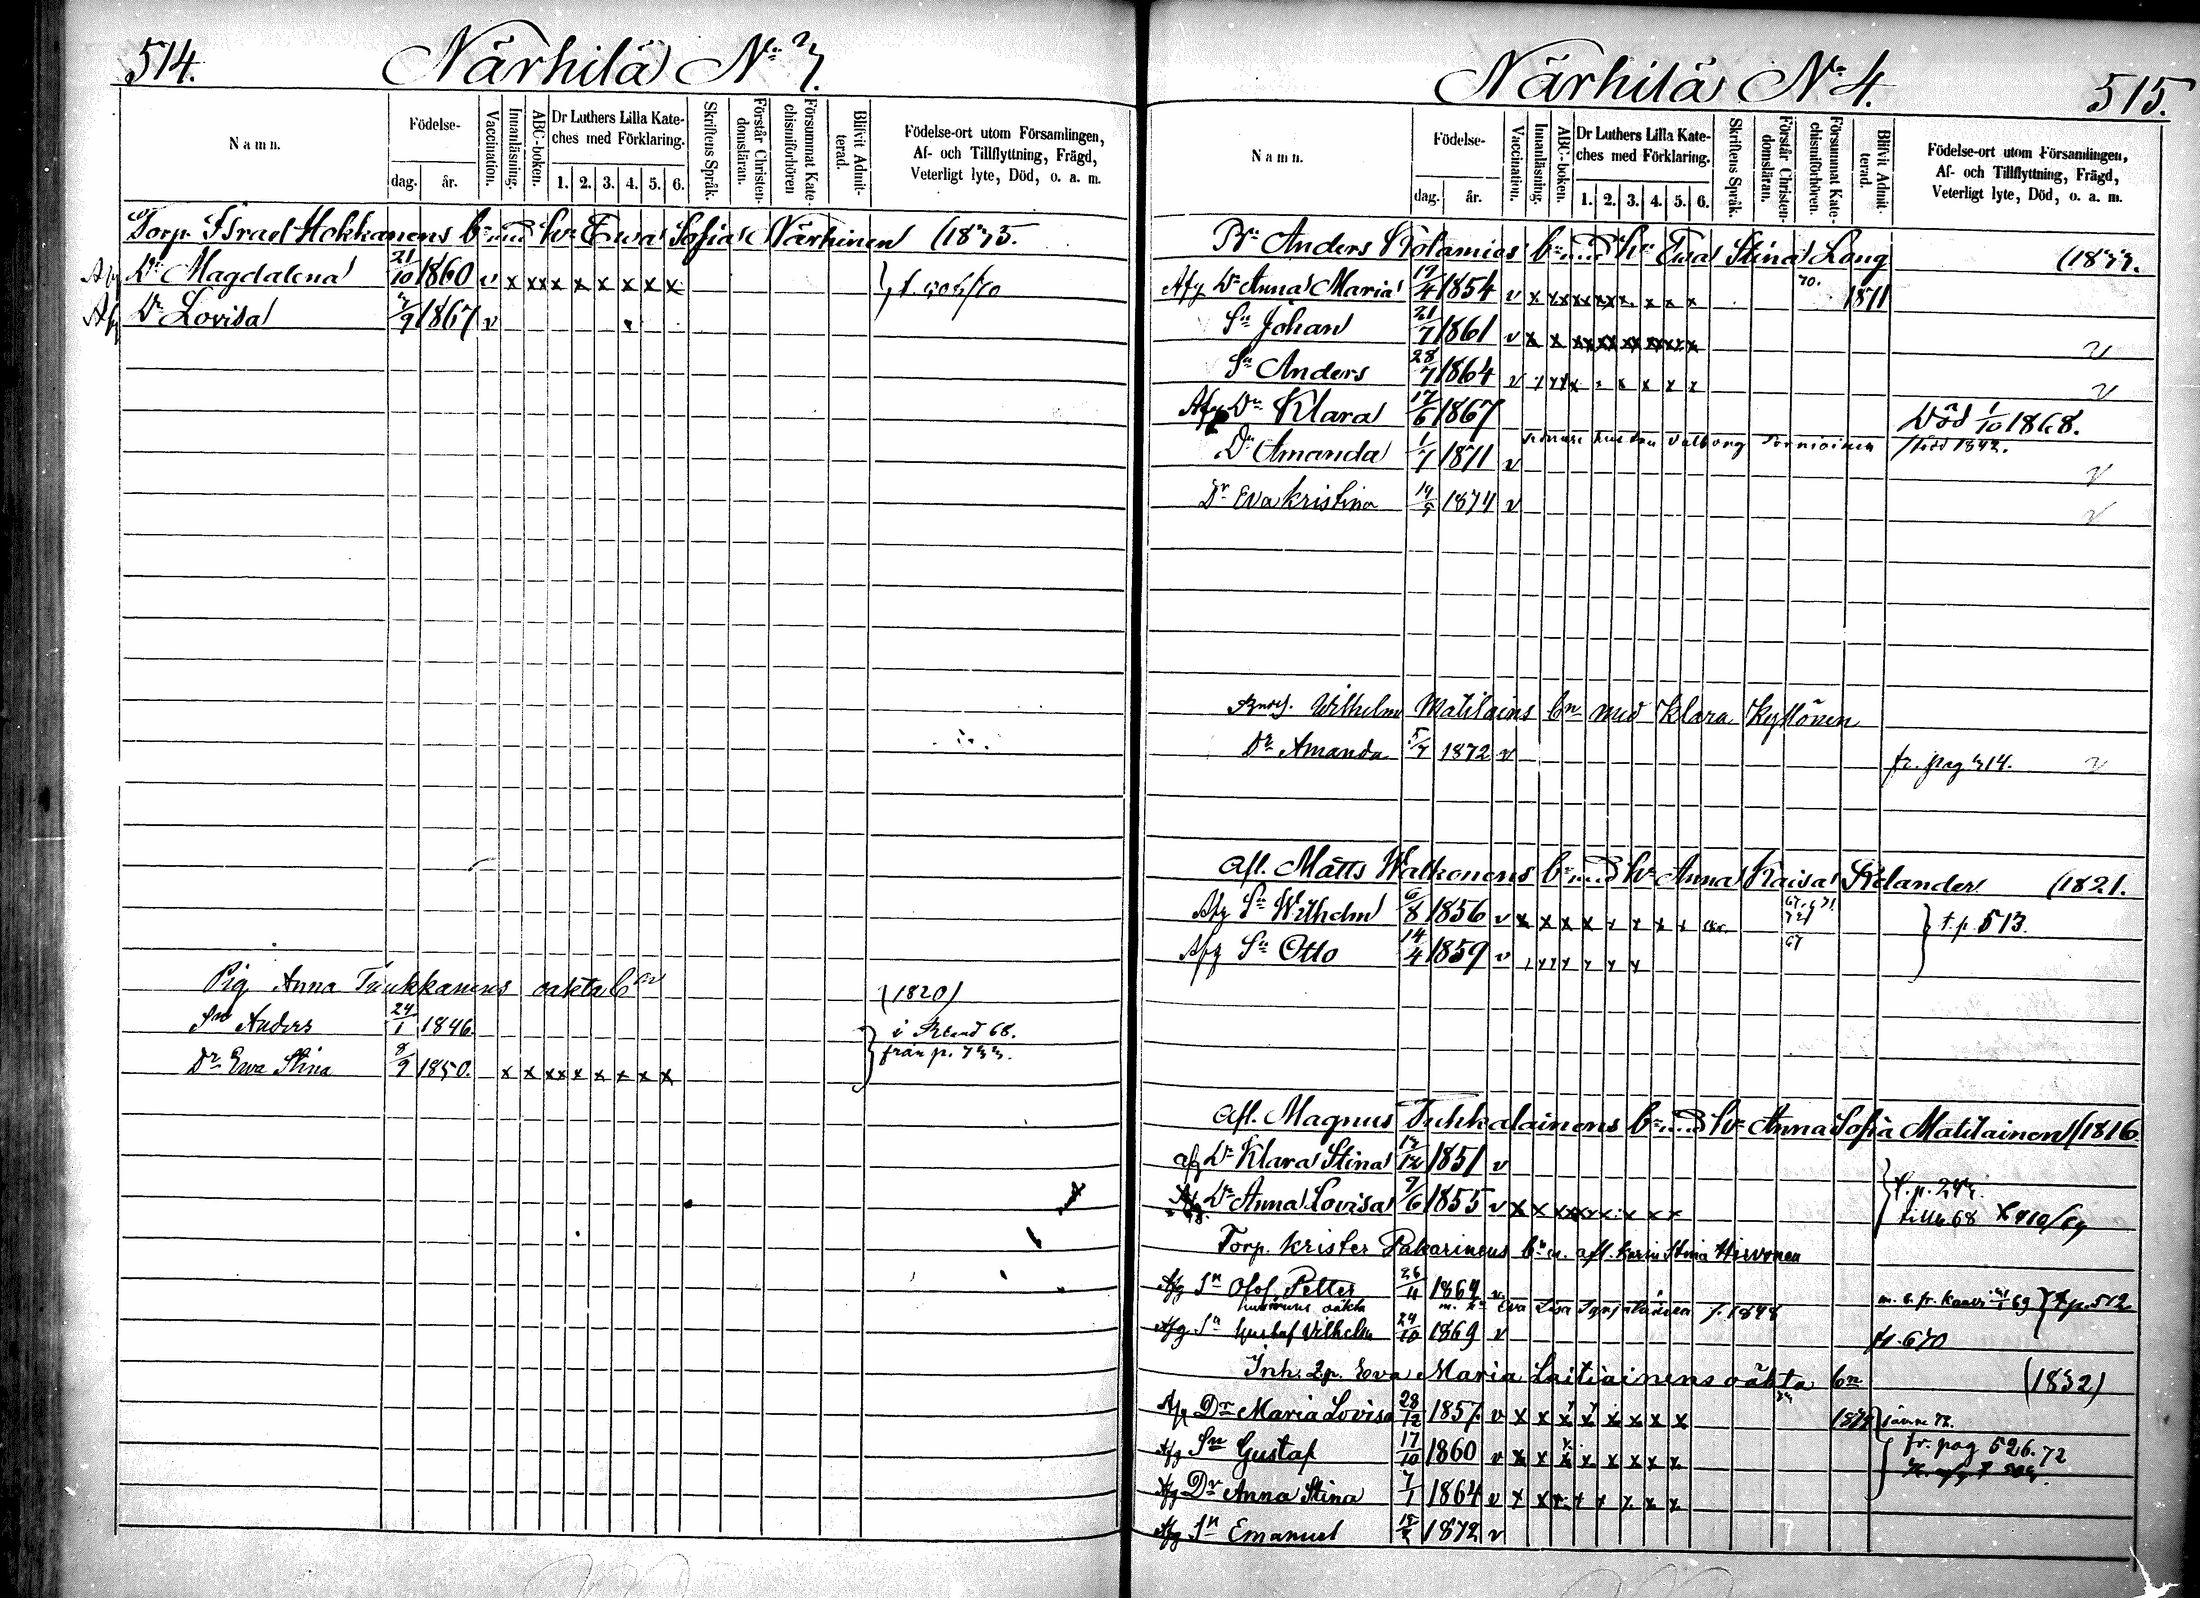 514.
Närhilä No 3.
Namn.
Födelse-
dag. år.
Vaccination.
Innanläsning.
ABC-boken.
Dr Luthers Lilla Kate-
ches med Förklaring.
1. 2. 3. 4. 5. 6.
Skriftens Språk.
Förstår Christen-
domsläran.
Försummat Kate-
chismiförhören
Blifvit Admit-
terad.
Födelse-ort utom Församlingen,
Af- och Tillflyttning, Frägd,
Veterligt lyte, Död, o. a. m.
Torp. Israel Hokkanens bn med h: Ewa Sofia Närhinen (1835.
Afg Dr Magdalena 21/10 1860 v x xx x x x x x x
Afg Dr Lovisa /9 1867 v
Pig Anna Tiukkanens oäkta bn (1820)
Sn Anders 24/1 1846.
Dr Ewa Stina 8/9 1850. x x xx x x x x x
från p. 733.
515.
Närhilä No 4.
Namn.
Födelse-
dag. år.
Vaccination.
Innanläsning.
ABC-boken.
Dr Luthers Lilla Kate-
ches med Förklaring.
1. 2. 3. 4. 5. 6.
Skriftens Språk.
Förstår Christen-
domsläran.
Försummat Kate-
chismiförhören.
Blifvit Admit-
terad.
Födelse-ort utom Församlingen,
Af- och Tillflyttning, Frägd,
Veterligt lyte, Död, o. a. m.
Anders bn med h: Ewa Stina Lang (1833.
Afg Dr Anna Maria /4 1854 v 70. 1871
Sn Johan 21/7 1861 v v
Sn Anders 28/7 1864 v v
Afg Dr Klara 17/6 1867 Död 1/10 1868.
Valborg Tornioinen född 1842.
Dr Amanda 1/7 1871 v v
Dr Eva Kristina 1874 v v
Wilhelm Matilains bn med Klara Kyllönen
Dr Amanda 5/7 1872 v fr. pag 314. v
Afl. Matts Walkonens bn med h: Anna Kaisa Kilander (1821.
Afg Sn Wilhelm 6/8 1856 v x x x x x x x x t. p. 513.
Afg Sn Otto 14/4 1859 v 67
Afl. Magnus Tuhkalainens bn med h: Anna Sofia Matilainen (1816
afg Dr Klara Stina /12 1851 v
Dr Anna Lovisa 9/6 1855 v
Torp. Krister Pakarinens bn m. afl. Karin Stina Hirvonen
Afg Sn Olof Petter 26/11 1864 v t. p. 512
hustruns oäkta Eva Lisa f. 1848
Afg Sn Gustaf Vilhelm 24/10 1869 v fr. 670
Inh. Eva Maria Laitiainens oäkta bn (1832)
Afg Dr Maria Lovisa 28/12 1857. v x x x x x x x x 1874
Afg Sn Gustaf 17/10 1860 v x x x x x x x x fr. pag 526. 72
Afg Dr Anna Stina 7/1 1864 v
Afg Sn Emanuel 1872 v